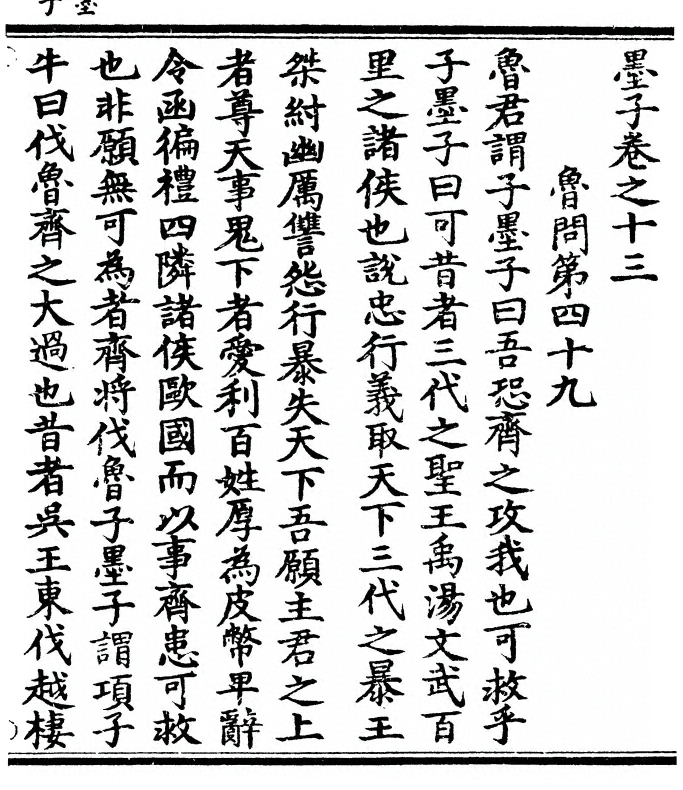 墨子卷之十三
魯問第四十九
魯君謂子墨子曰吾恐齊之攻我也可救乎
子墨子曰可昔者三代之聖王禹湯文武百
里之諸侯也說忠行義取天下三代之暴王
桀紂幽厲讐怨行暴失天下吾願主君之上
者尊天事鬼下者愛利百姓厚為皮幣卑辭
令函徧禮四隣諸侯歐國而以事齊患可救
也非願無可為者齊將伐魯子墨子謂項子
牛曰伐魯齊之大過也昔者吳王東伐越棲